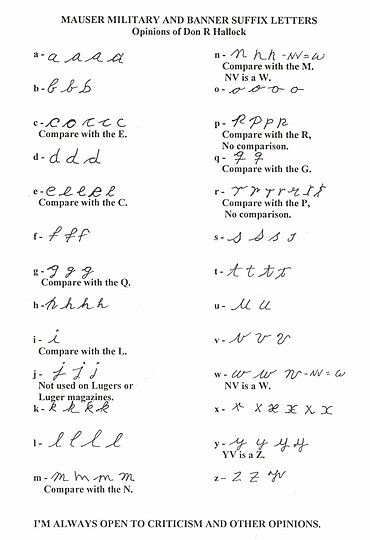 MAUSER MILITARY AND BANNER SUFFIX LETTERS
Opinions of Don R Hallock
a - a a a a
b - b b b
c - c o c c c
Compare with the E.
d - d d d
e - e e e e e
Compare with the C.
f - f f f
g - g g g
Compare with the Q.
h - h h h h
i - i
Compare with the L.
j - j j j
Not used on Lugers or
Luger magazines.
k - k k k k
l - l l l l
m - m m m m
Compare with the N.
n - n n n -NV=W
Compare with the M.
NV is a W.
o - o o o o
p - p p p p
Compare with the R,
No comparison.
q - q q
Compare with the G.
r - r r r r r r r
Compare with the P,
No comparison.
s - s s s s
t - t t t t
u - u u
v - v v v
w - w w w -NV=W
NV is a W.
x - x x x x x x
y - y y y y
YV is a Z.
z - z z yv
I'M ALWAYS OPEN TO CRITICISM AND OTHER OPINIONS.